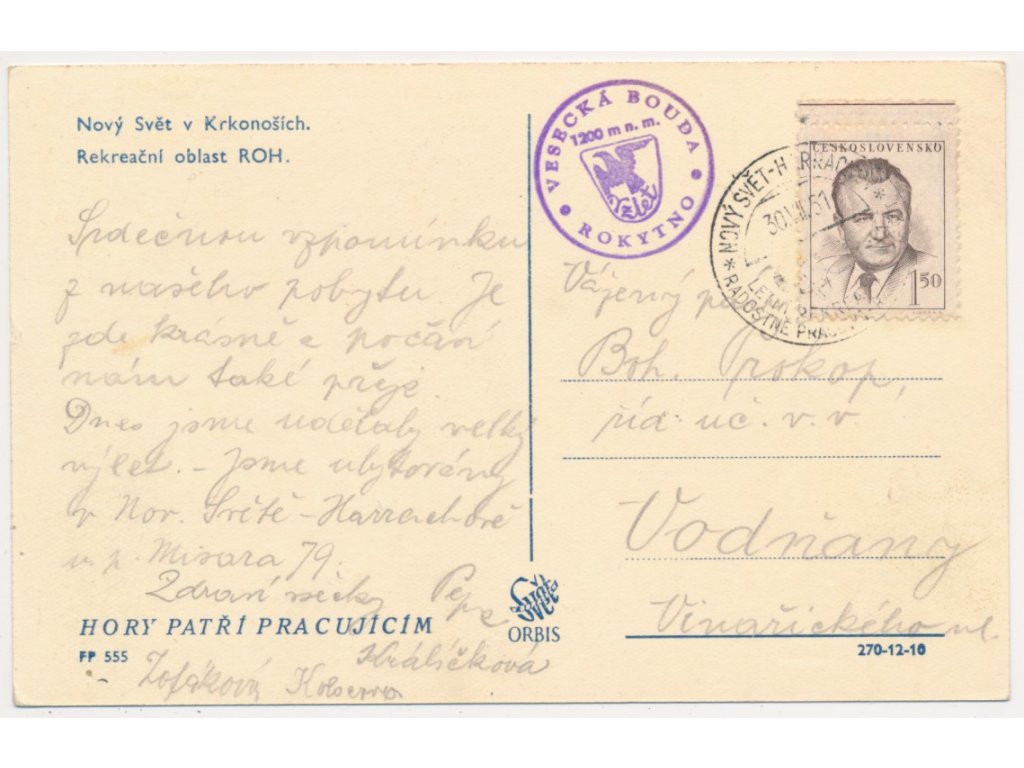 Nový Svět v Krkonoších.
Rekreační oblast ROH.
Srdečnou vzpomínku
z našeho pobytu. Je
zde krásně a počasí
nám také přeje.
Dnes jsme udělaly velký
výlet. – Jsme ubytovány
v Nov. Světě – Harrachově
u p. Misara 79.
Zdraví všecky Pepa
Králíčková
HORY PATŘÍ PRACUJÍCÍM
FP 555
VESECKÁ BOUDA
1200 m n. m.
Vzlet
ROKYTNO
ČESKOSLOVENSKO
1 50
NOVÝ SVĚT-HARRACHOV
30.VII.51
RADOSTNĚ
Vážený
Boh. Prokop,
říd. uč. v. v.
Vodňany
Vinařického ul.
Svět
ORBIS
270-12-10